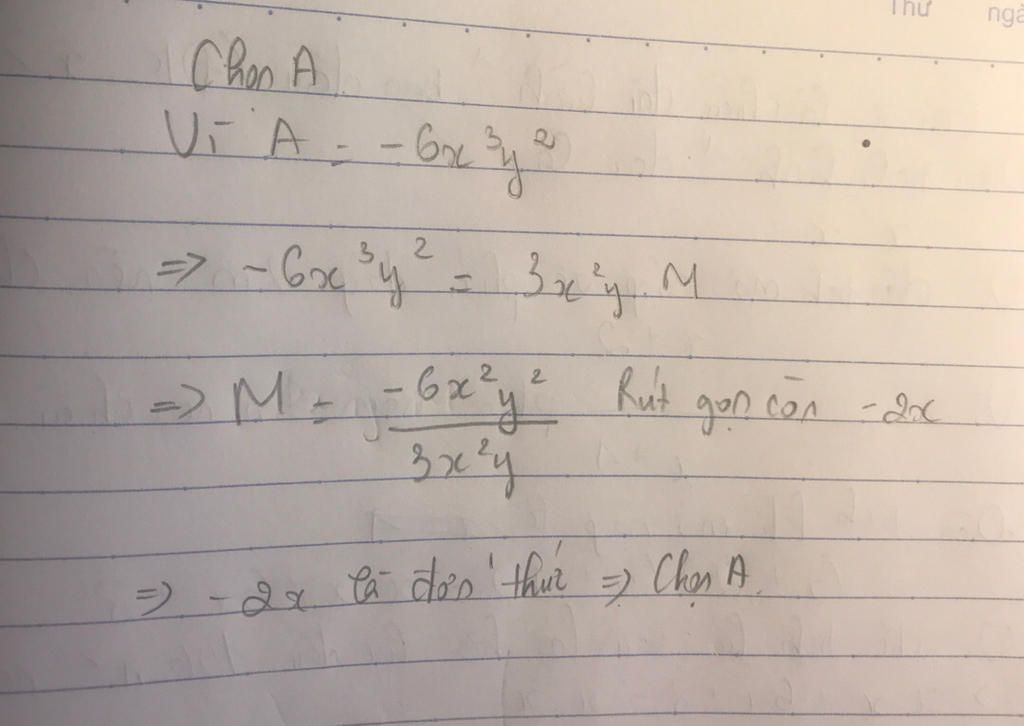 Thứ ngà
Chọn A
Vì A = -6x³y²
=> -6x³y² = 3x²y. M
=> M = -6x²y² / 3x²y Rút gọn còn -2x
=> -2x là đơn thức => Chọn A.